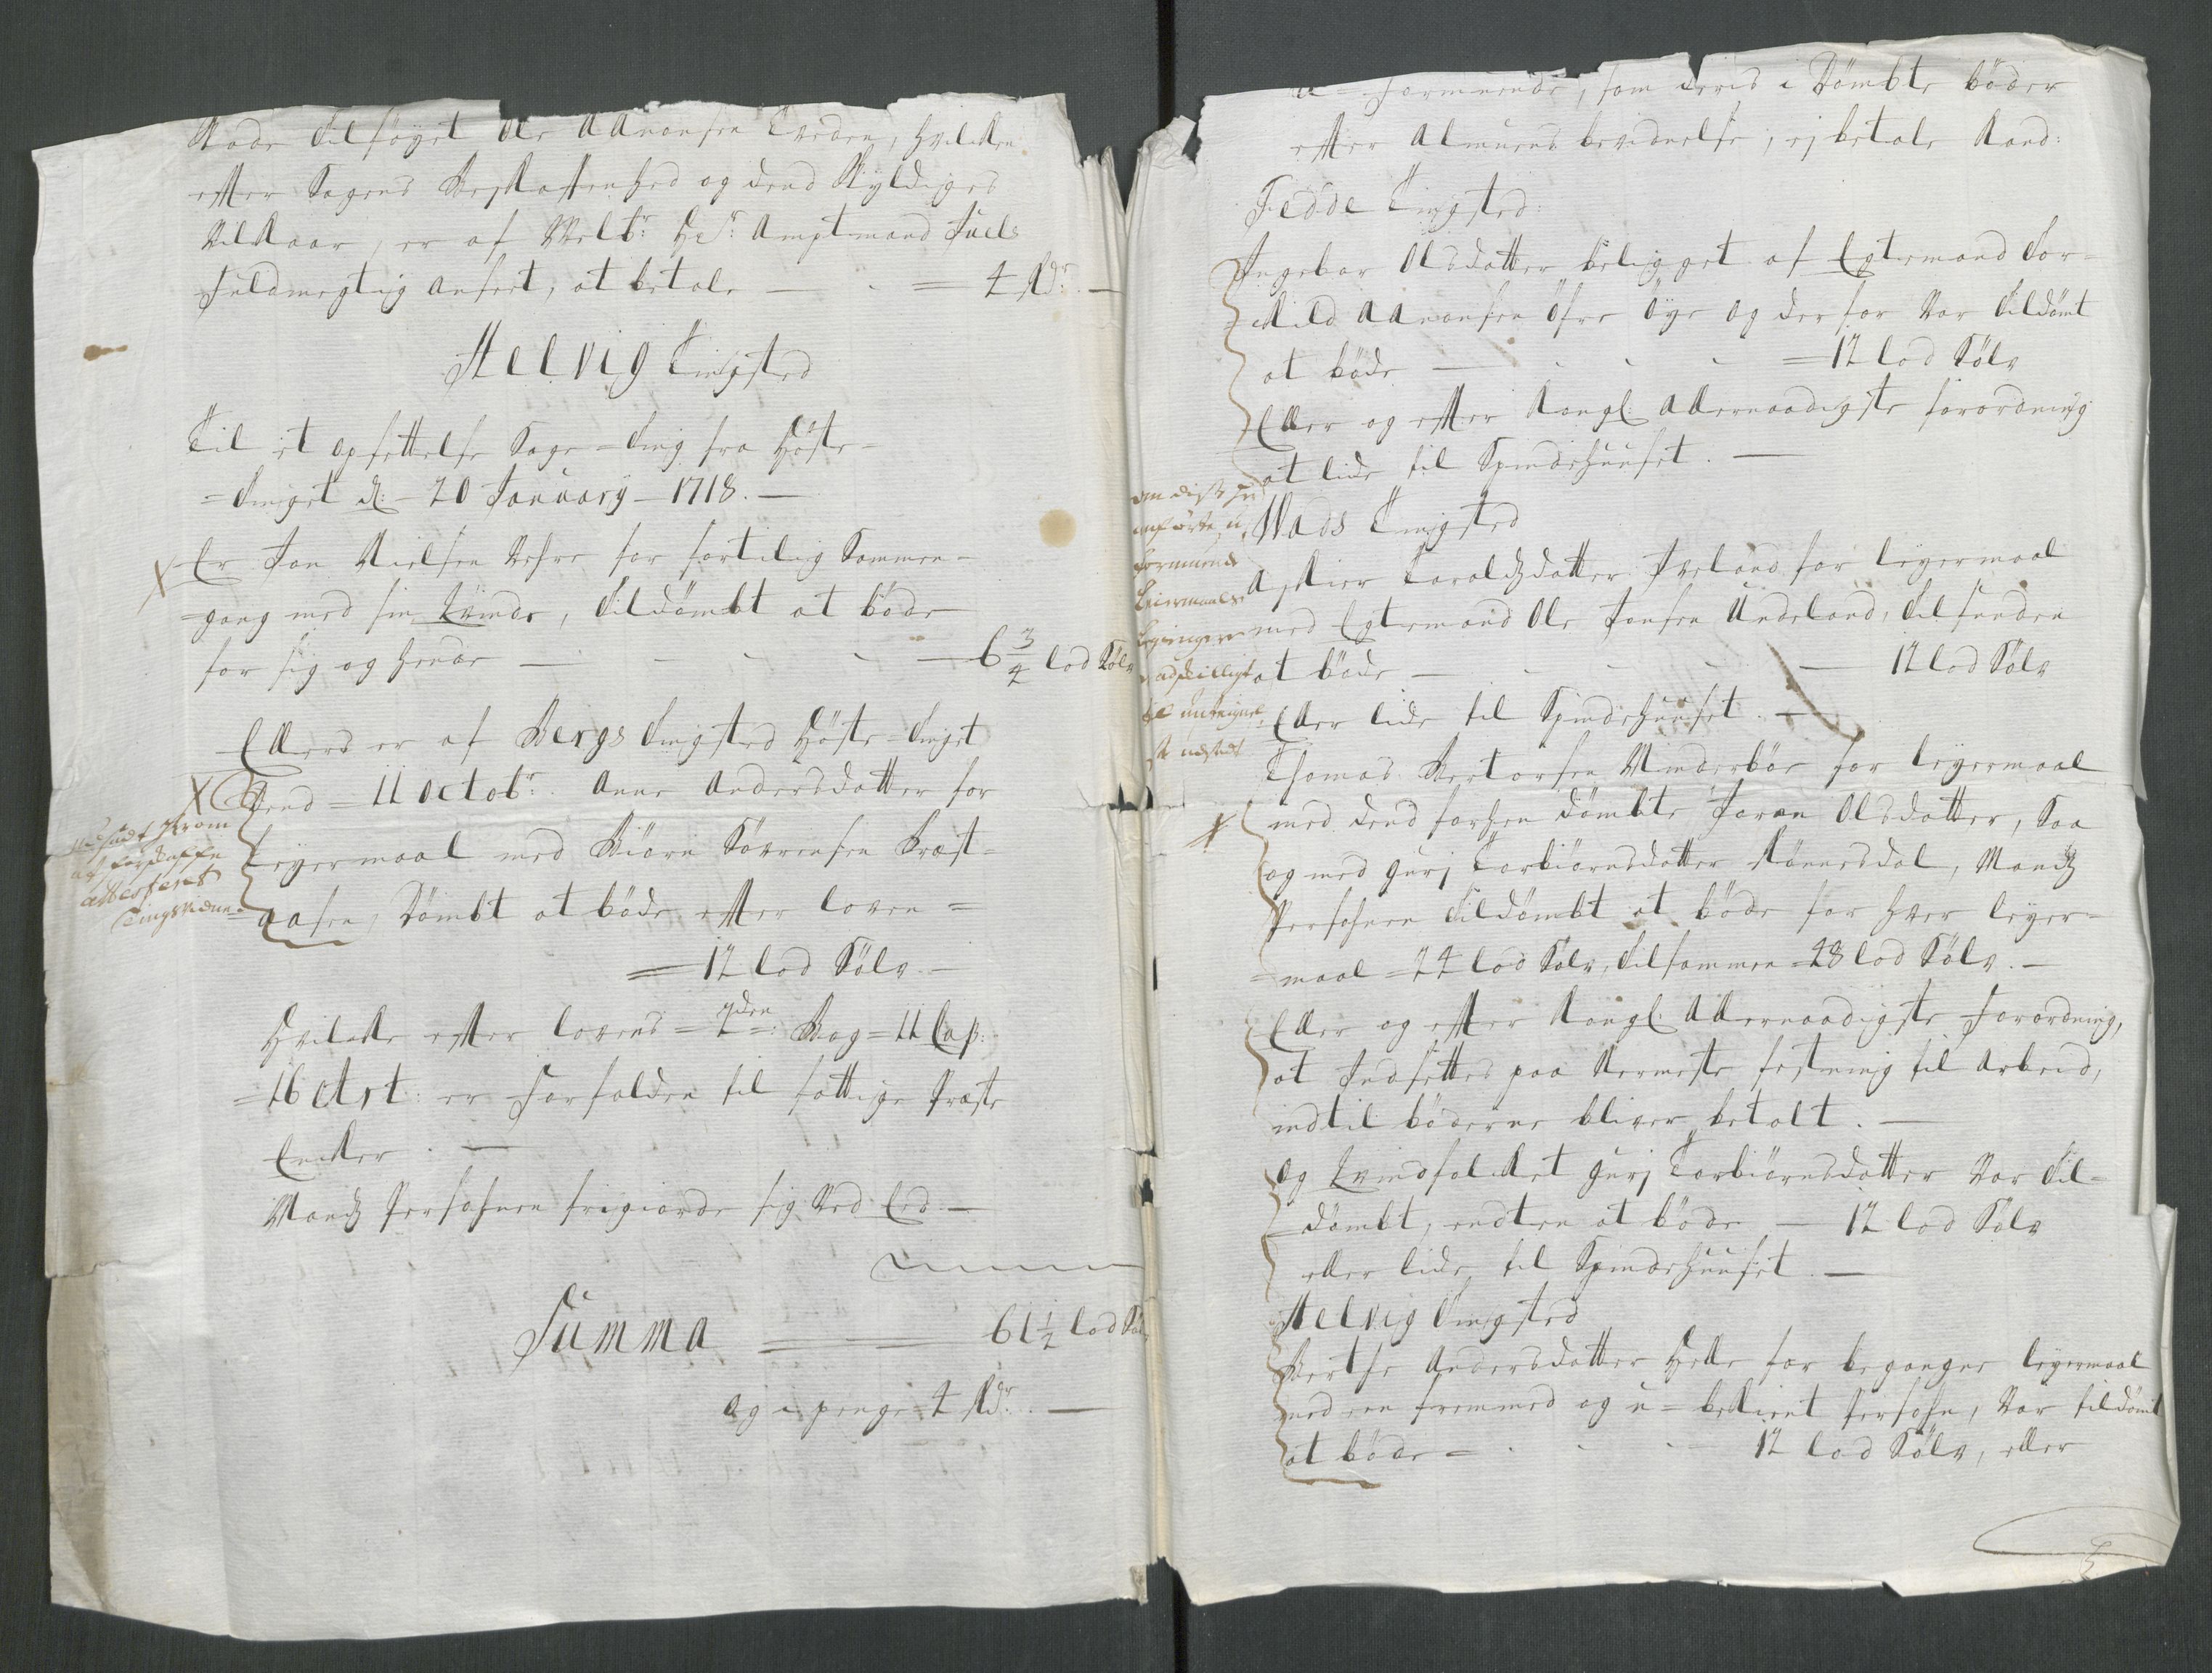 Skade tilføyet Ole Aanonsen Tveden, hvilken
efter Sagens Beskaffenhed og dend Skyldiges
Vilkaar, er af Welbr: Hr: Amptmand Juels
fuldmegtig ansett, at betale — 4 Rdr: —
Helvig Tingsted
Til et opsettelse Sage-ting fra Høste-
=tinget d: - 20 January - 1718. —
Er Jon Nielsen for fortilig Sammen-
=gang med sin Qvinde, tildømbt at bøde
for sig og hende — 6 3/4 lod Sølv
Ellers er af Bergs tingsted Høste-tinget
dend = 11 octobr: Anne Andersdatter for
Leyermaal med Biørn Sørensen Præst-
=aasen, Dømbt at bøde efter loven =
= 12 lod Sølv. —
attesteret
Tingsvidne
Hvilke efter lovens = 2den: Bog = 11 Cap:
= 16 Art: er forfalden til fattige Præste
Encker. —
Mands Persohnen frigiorde sig Ved Eed —
Summa == 61 1/2 lod Sølv
og i penge 4 Rdr: —
u-formuende, som deris i Dømbte bøder
efter Almuens bevidnelse, ej betale Kand:
Fedde Tingsted:
Ingebor Olsdatter beligget af Egtemand Tor=
=kild Aanonsen Øfre Øye og derfor Var tildømt
at bøde — = 12 lod Sølv
Eller og efter Kongl: Allernaadigste forordning
at lide til Spindehuuset. —
Nads Tingsted
Askier Taraldsdatter Iveland for leyermaal
med Egtemand Ole Jonsen Undeland, tilfunden
at bøde — 12 lod Sølv
Eller lide til Spindehuuset. —
anførte u
formuende
Leiermaals
Thomas Bertorsen Vinderbøe for leyermaal
med dend forhen dømbte Joran Olsdatter, Saa
og med Guri Torbiørnsdatter Rønnesdal, Mands
Persohnen tildømbt at bøde for hver leyer-
=maal = 24 lod Sølv, tilsammen = 48 lod Sølv. —
Eller og efter Kongl: Allernaadigste forordning,
at Indsettes paa Nermeste festning til Arbeid,
indtil bøderne bliver betalt. —
Og Qvindfolket Guri Torbiørnsdatter Var til=
=dømbt, endten at bøde — 12 lod Sølv
eller lide til Spindehuuset. —
Helvig tingsted
Berthe Andersdatter Helle for begangne leyermaal
med een fremmed og u-bekient Persohn, Var tildømt
at bøde = 12 lod Sølv, eller